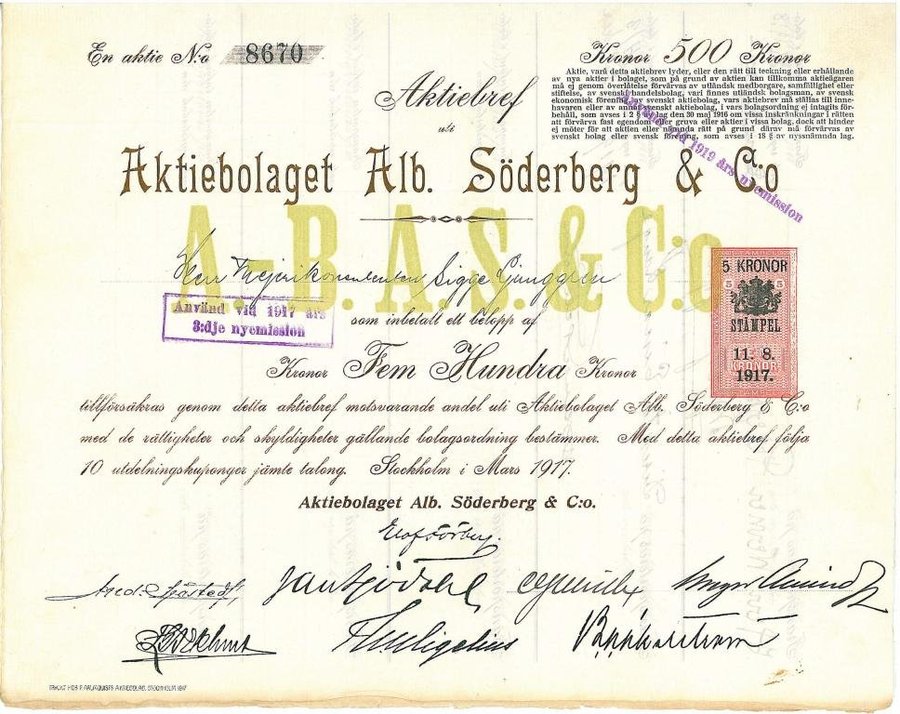 En aktie N:o 8670
Kronor 500 Kronor
Aktie, varå detta aktiebrev lyder, eller den rätt till teckning eller erhållande
av nya aktier i bolaget, som på grund av aktien kan tillkomma aktieägaren
må ej genom överlåtelse förvärvas av utländsk medborgare, samfällighet eller
stiftelse, av svenskt handelsbolag, vari finnes utländsk bolagsman, av svensk
ekonomisk förening, av svenskt aktiebolag, vars aktiebrev må ställas till inne-
havaren eller av annat svenskt aktiebolag, i vars bolagsordning ej intagits för-
behåll, som avses i 2 § i lag den 30 maj 1916 om vissa inskränkningar i rätten
att förvärva fast egendom eller gruva eller aktier i vissa bolag, dock att hinder
ej möter för att aktien eller nämnda rätt på grund därav må förvärvas av
svenskt bolag eller svensk förening, som avses i 18 § av nyssnämnda lag.
Använd vid 1919 års nyemission
Aktiebref
uti
Aktiebolaget Alb. Söderberg & C:o
A.-B. A. S. & C:o
Herr Sigge Ljunggren
Använd vid 1917 års
3:dje nyemission
som inbetalt ett belopp af
Kronor Fem Hundra Kronor
5 KRONOR
5 5
STÄMPEL
11. 8.
KRONOR
1917.
tillförsäkras genom detta aktiebref motsvarande andel uti Aktiebolaget Alb. Söderberg & C:o
med de rättigheter och skyldigheter gällande bolagsordning bestämmer. Med detta aktiebref följa
10 utdelningskuponger jämte talong. Stockholm i Mars 1917.
Aktiebolaget Alb. Söderberg & C:o.